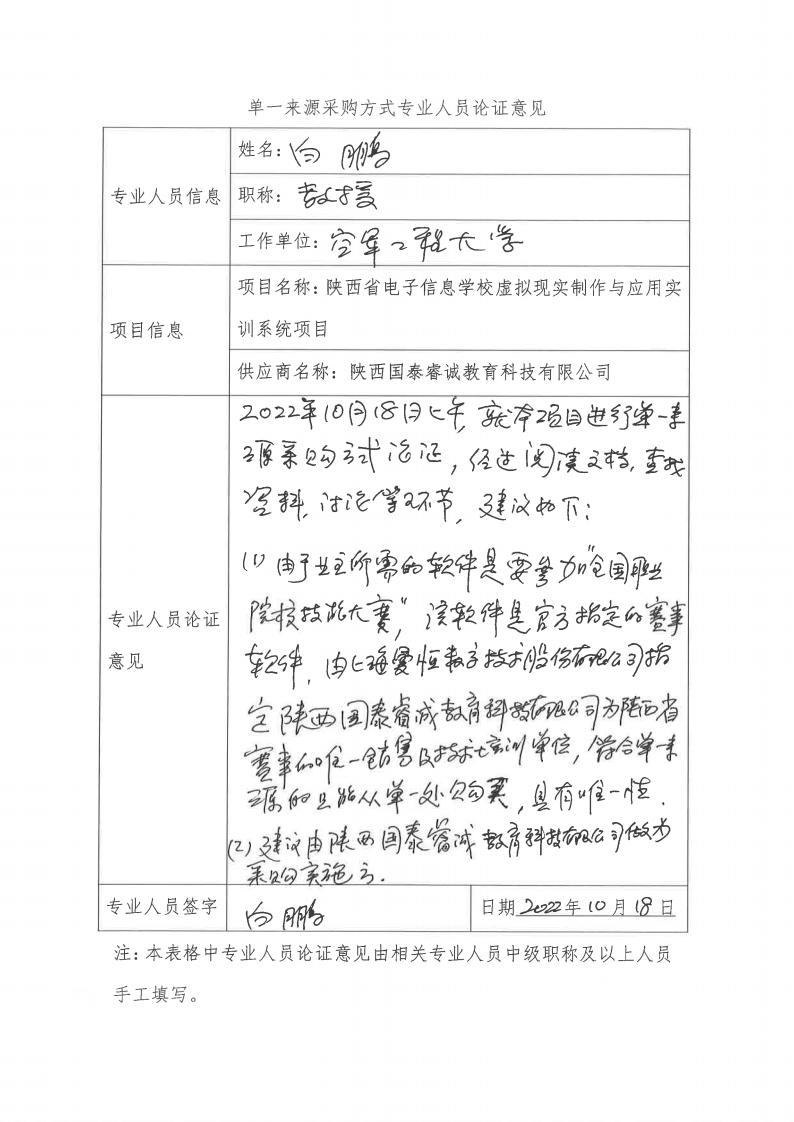 单一来源采购方式专业人员论证意见
专业人员信息
姓名：白鹏
职称：教授
工作单位：空军工程大学
项目信息
项目名称：陕西省电子信息学校虚拟现实制作与应用实
训系统项目
供应商名称：陕西国泰睿诚教育科技有限公司
专业人员论证
意见
2022年10月18日上午，就本项目进行单一来
源采购方式论证，经过阅读文档，查找
资料，讨论学习环节，建议如下：
(1) 由于业主所需的软件是要参加"全国职业
院校技能大赛"，该软件是官方指定的赛事
软件，由上海曼恒数字技术股份有限公司指
定陕西国泰睿诚教育科技有限公司为陕西省
赛事的唯一销售及技术培训单位，符合单一来
源的只能从单一处购买，具有唯一性．
(2) 建议由陕西国泰睿诚教育科技有限公司做为
采购实施方．
专业人员签字
白鹏
日期2022年10月18日
注：本表格中专业人员论证意见由相关专业人员中级职称及以上人员
手工填写。